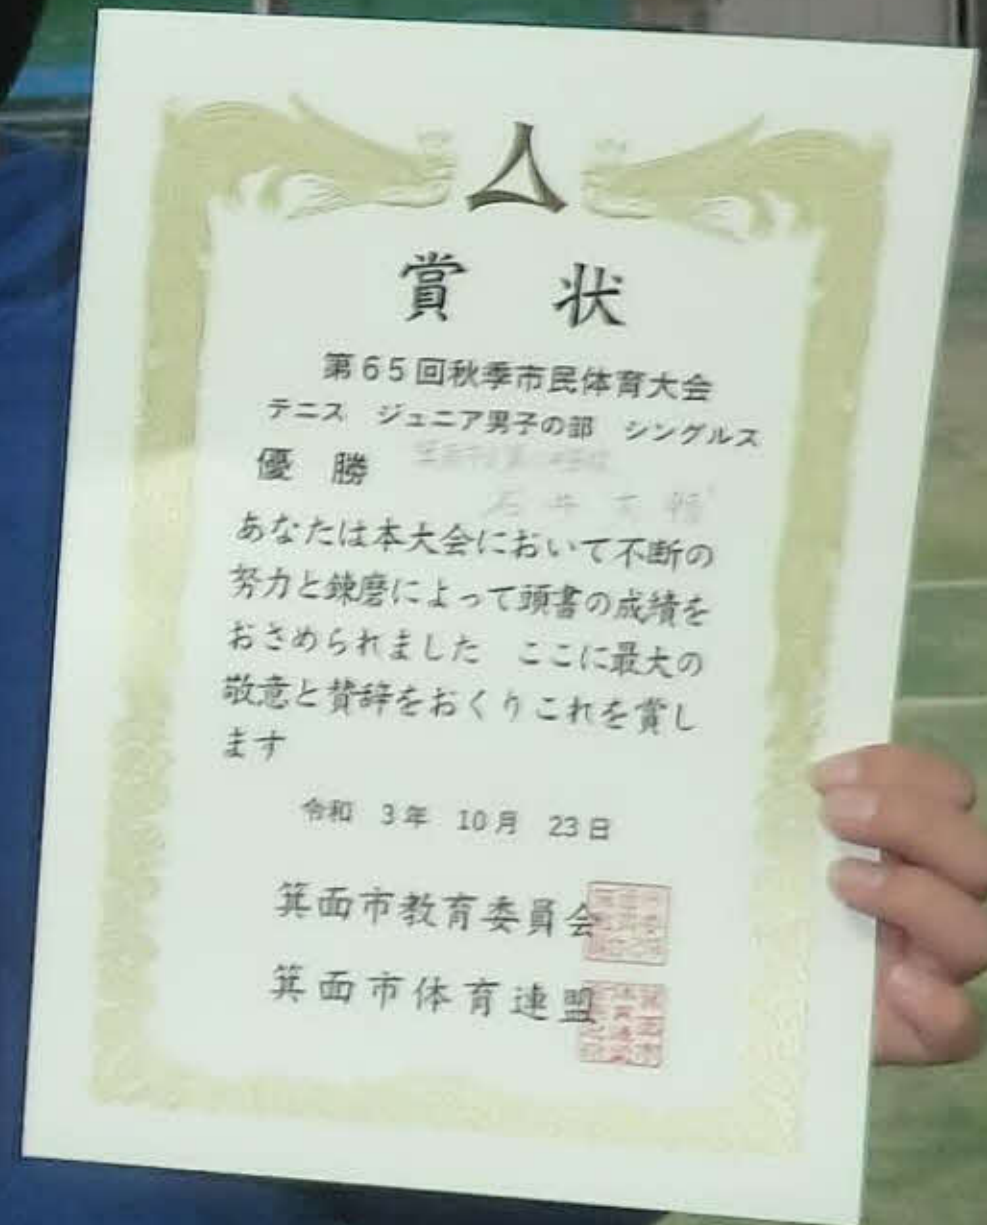 賞状
第65回秋季市民体育大会
テニス ジュニア男子の部 シングルス
優勝
あなたは本大会において不断の
努力と錬磨によって頭書の成績を
おさめられました ここに最大の
敬意と賛辞をおくりこれを賞し
ます
令和 3年 10月 23日
箕面市教育委員会
箕面市体育連盟